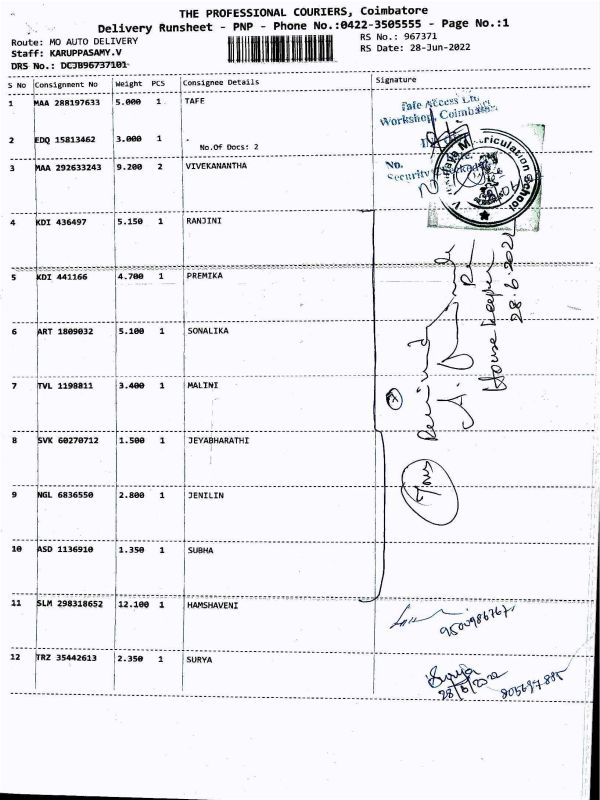 THE PROFESSIONAL COURIERS, Coimbatore
Delivery Runsheet - PNP - Phone No.:0422-3505555 - Page No.:1
Route: MO AUTO DELIVERY
RS No.: 967371
Staff: KARUPPASAMY.V
RS Date: 28-Jun-2022
DRS No.: DCJB96737101
S No Consignment No Weight PCS Consignee Details Signature
1 MAA 288197633 5.000 1 TAFE
Tafe Access Ltd
Workshop, Coimbatore
2 EDQ 15813462 3.000 1 .
No.Of Docs: 2
3 MAA 292633243 9.200 2 VIVEKANANTHA
No.
Security
Matriculation School
4 KDI 436497 5.150 1 RANJINI
5 KDI 441166 4.700 1 PREMIKA
6 ART 1809032 5.100 1 SONALIKA
7 TVL 1198811 3.400 1 MALINI
8 SVK 60270712 1.500 1 JEYABHARATHI
9 NGL 6836550 2.800 1 JENILIN
10 ASD 1136910 1.350 1 SUBHA
7
House keeper
28.6.2022
11 SLM 298318652 12.100 1 HAMSHAVENI
12 TRZ 35442613 2.350 1 SURYA
Surya
28/6/2022